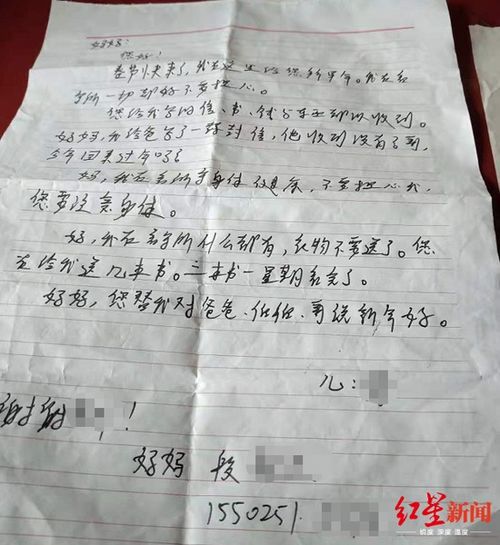 妈妈:
您好!
春节快来了,我在这里给您拜年。我在看
守所一切都好不要担心。
您给我写的信、书、钱与东西都以收到。
妈妈,我给爸写了一封信,他收到没有了,
今年回来过年吗?
妈,我在看所守身体健康,不要担心我,
您要注意身体。
妈,我在看守所什么都有,衣物不要送了。您
在给我送几本书。三本书一星期看完了。
妈妈,您替我对爸爸、伯伯、哥说新年好。
儿:
谢谢 !
妈妈 段
1550251
红星新闻
锐度 深度 温度